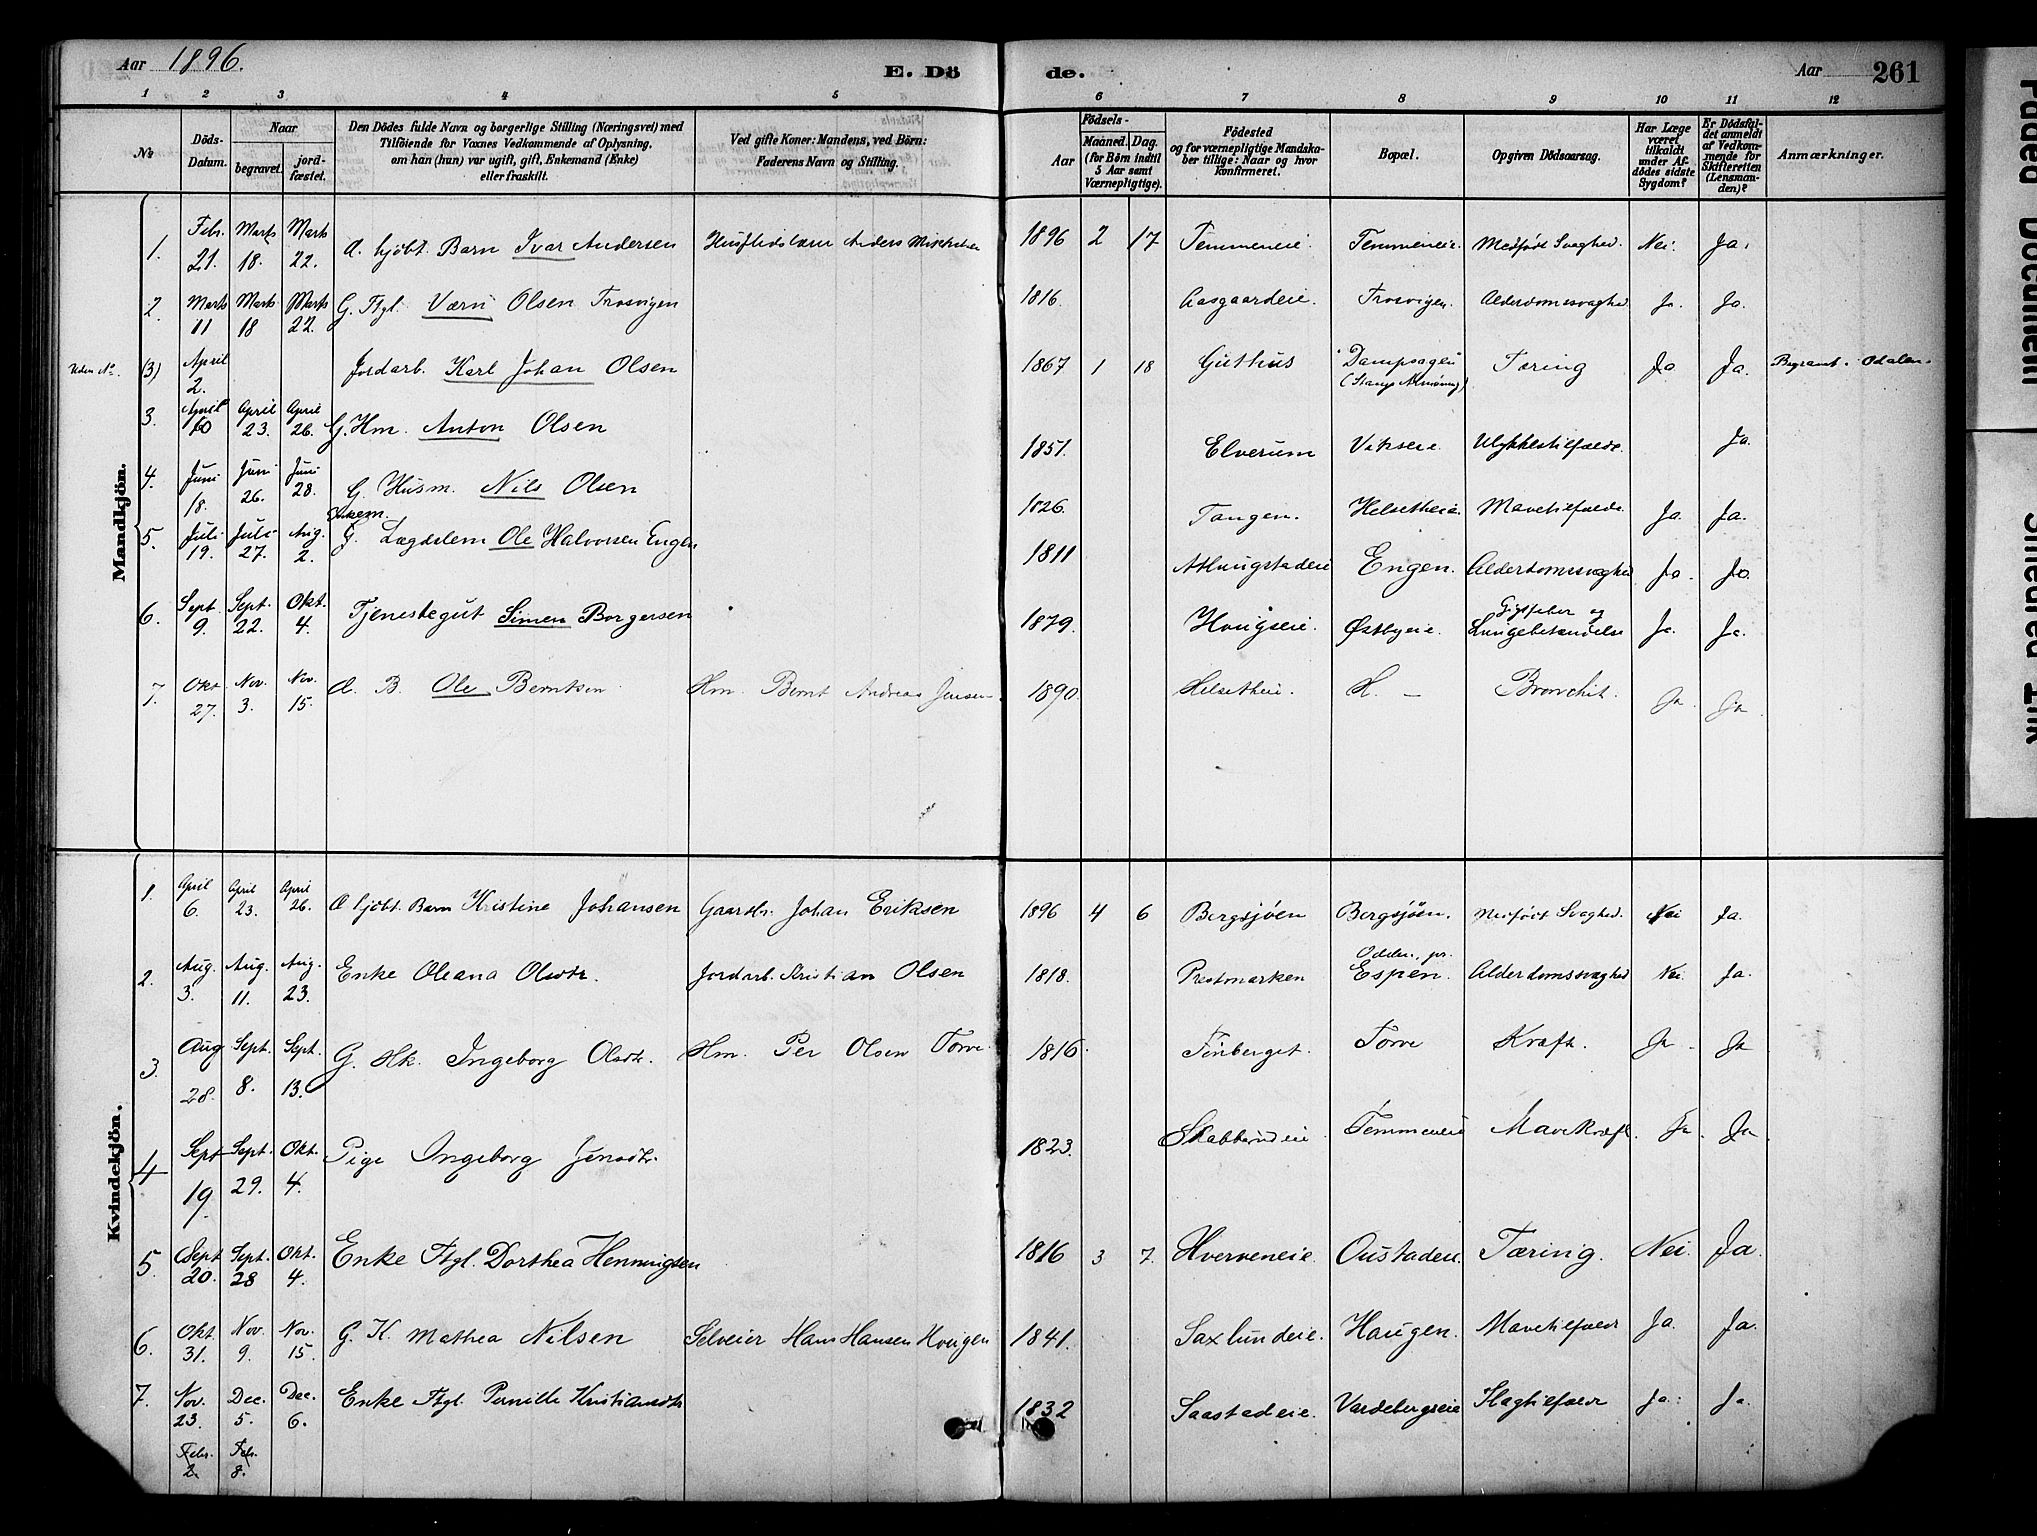 Aar 1896.
E. Dö
de.
Aar
261
1 2 3 4 5 6 7 8 9 10 11 12
No
Döds-Datum.
Naar
begravet.
jordfæstet.
Den Dödes fulde Navn og borgerlige Stilling (Næringsvei) med
Tilföiende for Voxnes Vedkommende af Oplysning,
om han (hun) var ugift, gift, Enkemand (Enke)
eller fraskilt.
Ved gifte Koner: Mandens, ved Börn:
Faderens Navn og Stilling.
Födsels-
Aar
Maaned. Dag.
(for Börn indtil
5 Aar samt
Værnepligtige).
Födested
og for værnepligtige Mandskaber
tillige: Naar og hvor
konfirmeret.
Bopæl.
Opgiven Dödsaarsag.
Har Læge
været
tilkaldt
under Afdödes
sidste
Sygdom?
Er Dödsfaldet
anmeldt
af Vedkommende
for
Skifteretten
(Lensmanden)?
Anmærkninger.
Mandkjön.
1. Febr. 21. Marts 18. Marts 22. Æ. hjdbt. Barn Ivar Andersen Husflidslærer Anders 1896 2 17 Temmeneie. Temmeneie. Medfødt Svaghed. Nei. Ja.
2. Marts 11 Marts 18 Marts 22. G. Ftgl. Olsen Trosvigen 1816. Aasgaardeie. Trosvigen. Alderdomssvaghed Ja. Ja.
Uden No. (3) April 2. Jordarb. Karl Johan Olsen 1867 1 18 Guthus Dampsagen (Stange Almening) Tæring Ja Ja. Begravet i Odalen.
3. April 10 April 23. April 26. G. Hm. Anton Olsen 1851. Elverum Vikseie Ulykkestilfælde. Ja.
4. Juni 18. Juni 26. Juni 28. G. Husm. Nils Olsen 1826. Tangen. Helsetheie Mavetilfælde Ja. Ja.
5. Juli 19. Juli 27. Aug. 2. Enkem. G. Lægdslem Ole Halvorsen Engen 1811 Engen. Alderdomssvaghed Ja. Ja.
6. Sept. 9. Sept. 22. Okt. 4. Tjenestegut Simen Borgersen 1879. Haugseie. Østbyeie. Gigtfeber og Lungebetændelse Ja. Ja.
7. Okt. 27. Nov. 3. Nov. 15. Æ. B. Ole Berntsen Hm. Bernt Andreas Jensen 1890. Helsetheie. H. — Bronchit. Ja. Ja
Kvindekjön.
1. April 6. April 23. April 26. Æ hjdbt. Barn Kristine Johansen Gaardbr. Johan Eriksen 1896 4 6 Bergsjøen Bergsjöen. Medfødt Svaghed. Nei Ja.
2. Aug. 3. Aug. 11. Aug. 23. Enke Oleana Olsdtr. Jordarb. Kristian Olsen 1818. Prestmarken Odalen, pr. Espen. Alderdomssvaghed Nei. Ja.
3. Aug 28. Sept. 8. Sept. 13. G. Hk. Ingeborg Olsdtr. Hm. Per Olsen Torve 1816. Finberget. Torve Kræft. Ja. Ja
4 Sept 19. Sept. 29. Okt. 4. Pige Ingeborg Jensdtr. 1823. Skabberudeie. Temmeneie Mavekræft. Ja. Ja.
5. Sept 20. Sept. 28 Okt. 4. Enke Ftgl. Dorthea Henningsen 1816 3 7. Hverveneie. Oustadeie. Tæring. Nei. Ja.
6. Okt. 31. Nov. 9. Nov. 15. G. K. Mathea Nilsen Selveier Hans Hansen Haugen 1841. Saxlundeie. Haugen. Mavetilfælde Ja. Ja.
7. Nov. 23. Dec. 5. Dec. 6. Enke Ftgl. Pernille Kristiansdtr 1832 Saastadeie. Vardebergseie Slagtilfælde Ja. Ja.
Febr. 2. Feb. 8.
Faded Document
Smeared Ink